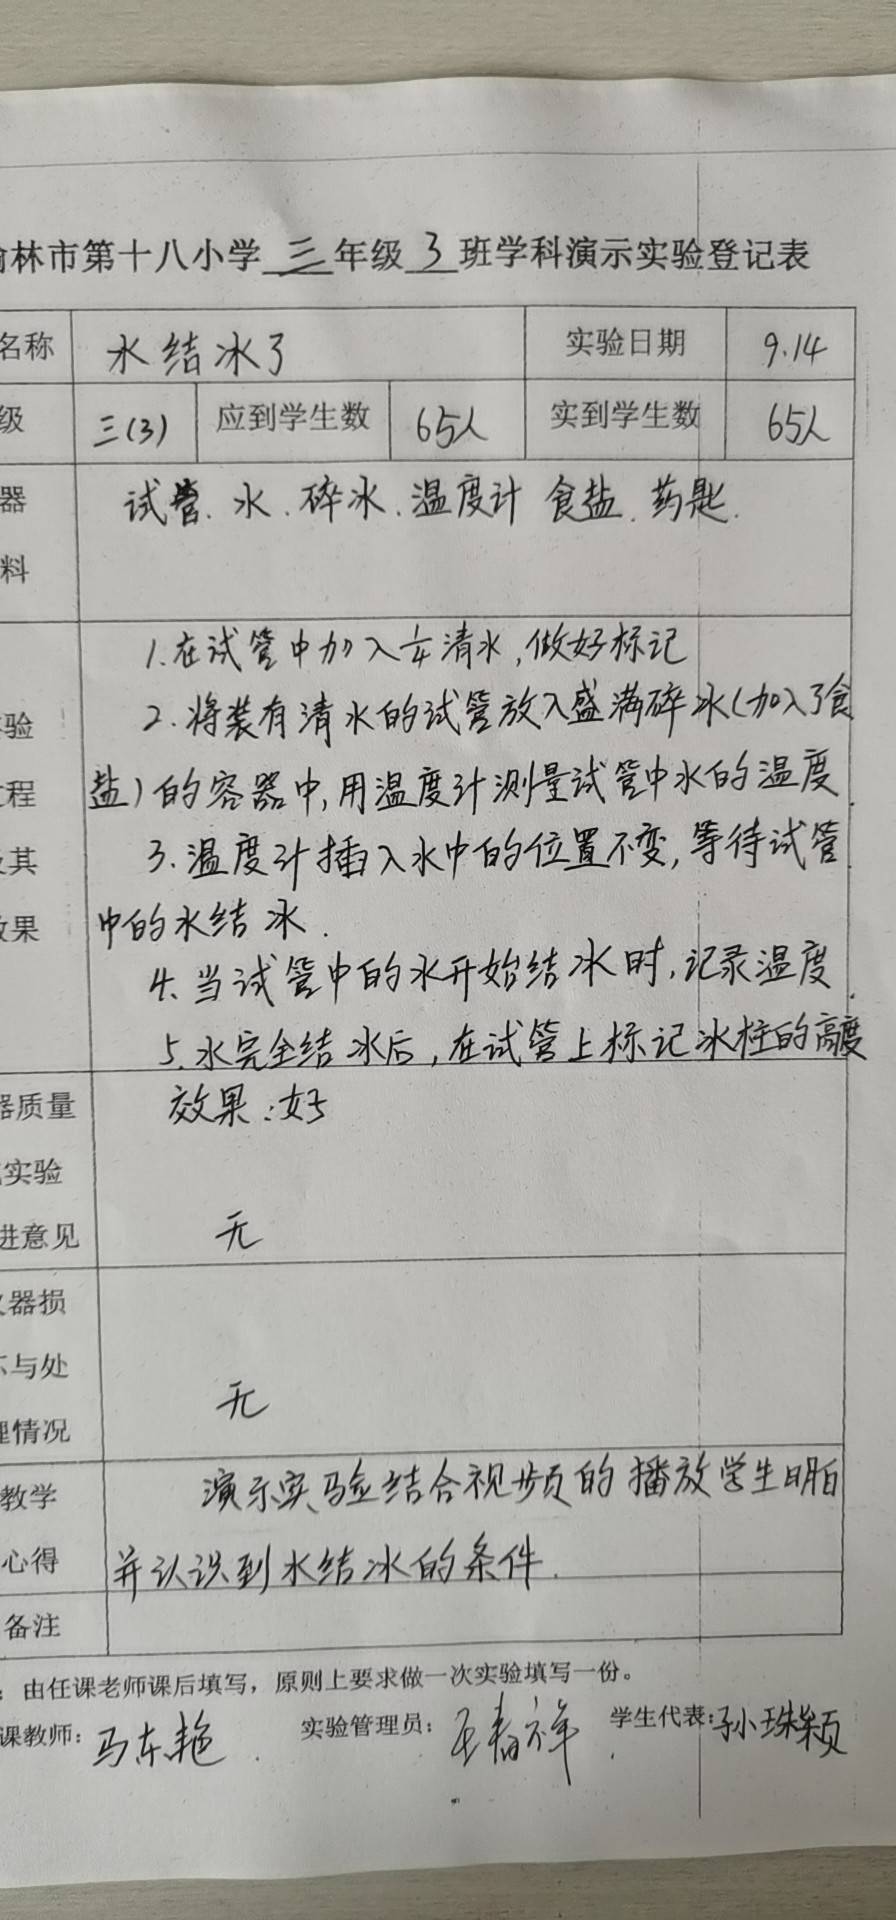 榆林市第十八小学 三 年级 3 班学科演示实验登记表
名称 水结冰了 实验日期 9.14
级 三(3) 应到学生数 65人 实到学生数 65人
器 试管、水、碎冰、温度计 食盐、药匙.
料
1.在试管中加入 清水,做好标记
2.将装有清水的试管放入盛满碎冰(加入了食
验
盐)的容器中,用温度计测量试管中水的温度
程
3.温度计插入水中的位置不变,等待试管
其
中的水结冰.
效果
4.当试管中的水开始结冰时,记录温度
5.水完全结冰后,在试管上标记冰柱的高度
器质量 效果:好
实验
进意见 无
仪器损
坏与处
无
理情况
教学 演示实验结合视频的播放学生明白
心得 并认识到水结冰的条件.
备注
:由任课老师课后填写,原则上要求做一次实验填写一份。
课教师: 马东艳 实验管理员: 学生代表: 孙珠颖